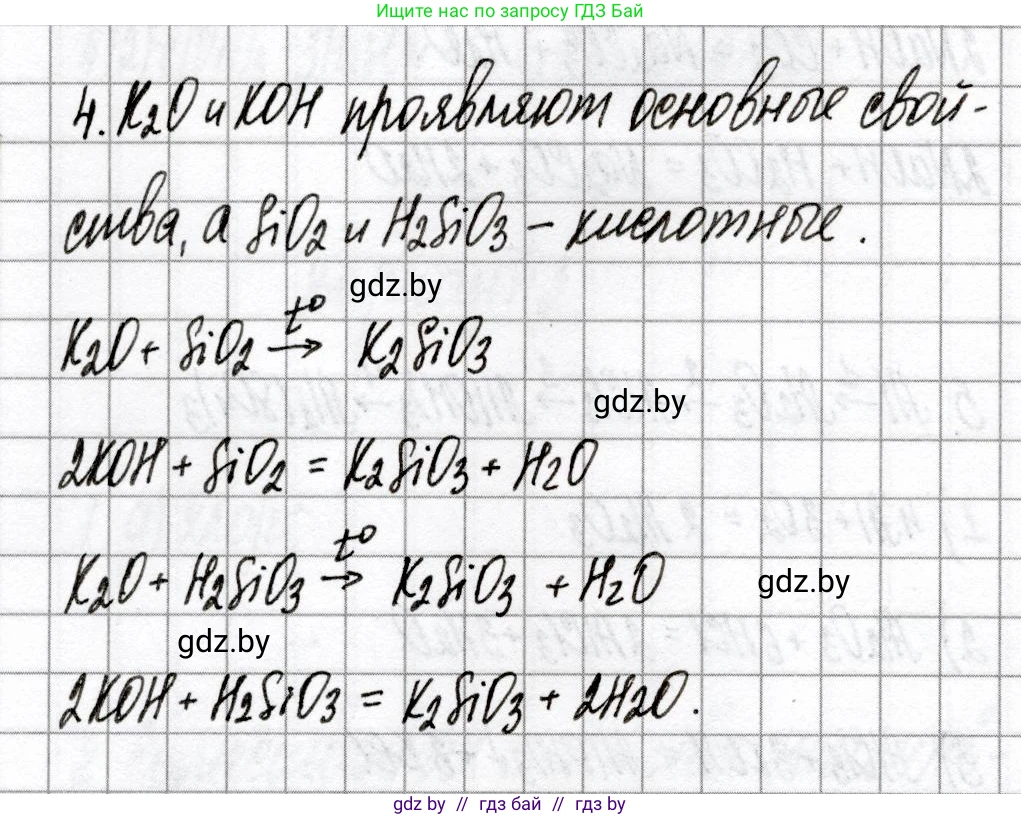 Ищите нас по запросу ГДЗ Бай
4. K₂O и KOH проявляют основные свой-
ства, а SiO₂ и H₂SiO₃ – кислотные.
gdz.by
K₂O + SiO₂ →t° K₂SiO₃
gdz.by
2KOH + SiO₂ = K₂SiO₃ + H₂O
K₂O + H₂SiO₃ →t° K₂SiO₃ + H₂O
gdz.by
gdz.by
2KOH + H₂SiO₃ = K₂SiO₃ + 2H₂O.
gdz by // гдз бай // gdz by